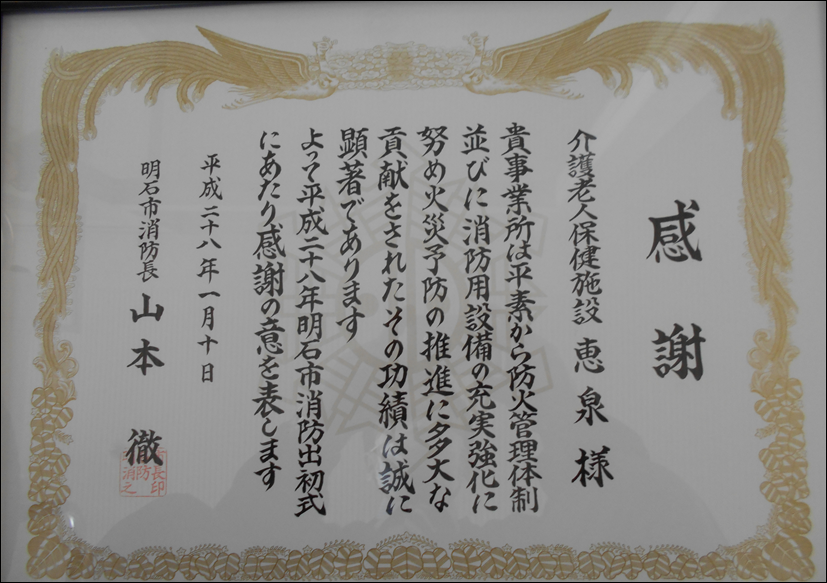 感謝
介護老人保健施設 恵泉様
貴事業所は平素から防火管理体制
並びに消防用設備の充実強化に
努め火災予防の推進に多大な
貢献をされたその功績は誠に
顕著であります
よって平成二十八年明石市消防出初式
にあたり感謝の意を表します
平成二十八年一月十日
明石市消防長 山本 徹